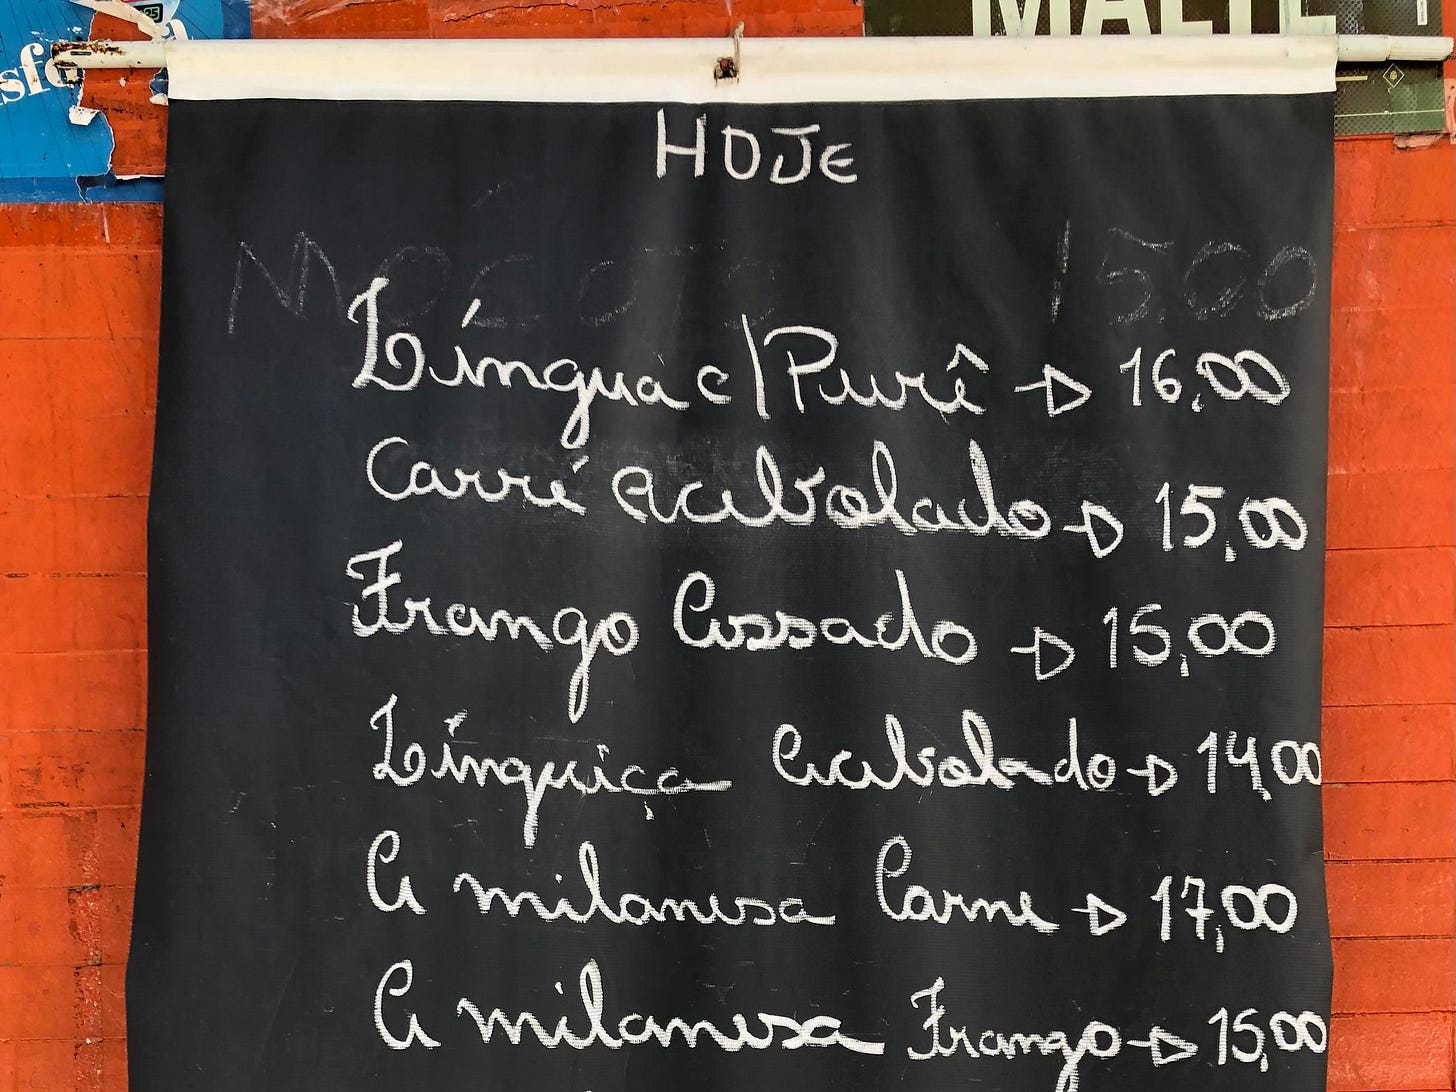 MALTE
HOJE
Mocotó 1500
Língua c/ Purê → 16,00
Carré acebolado → 15,00
Frango Assado → 15,00
Línguiça Acebolado → 14,00
A milanesa Carne → 17,00
A milanesa Frango → 15,00